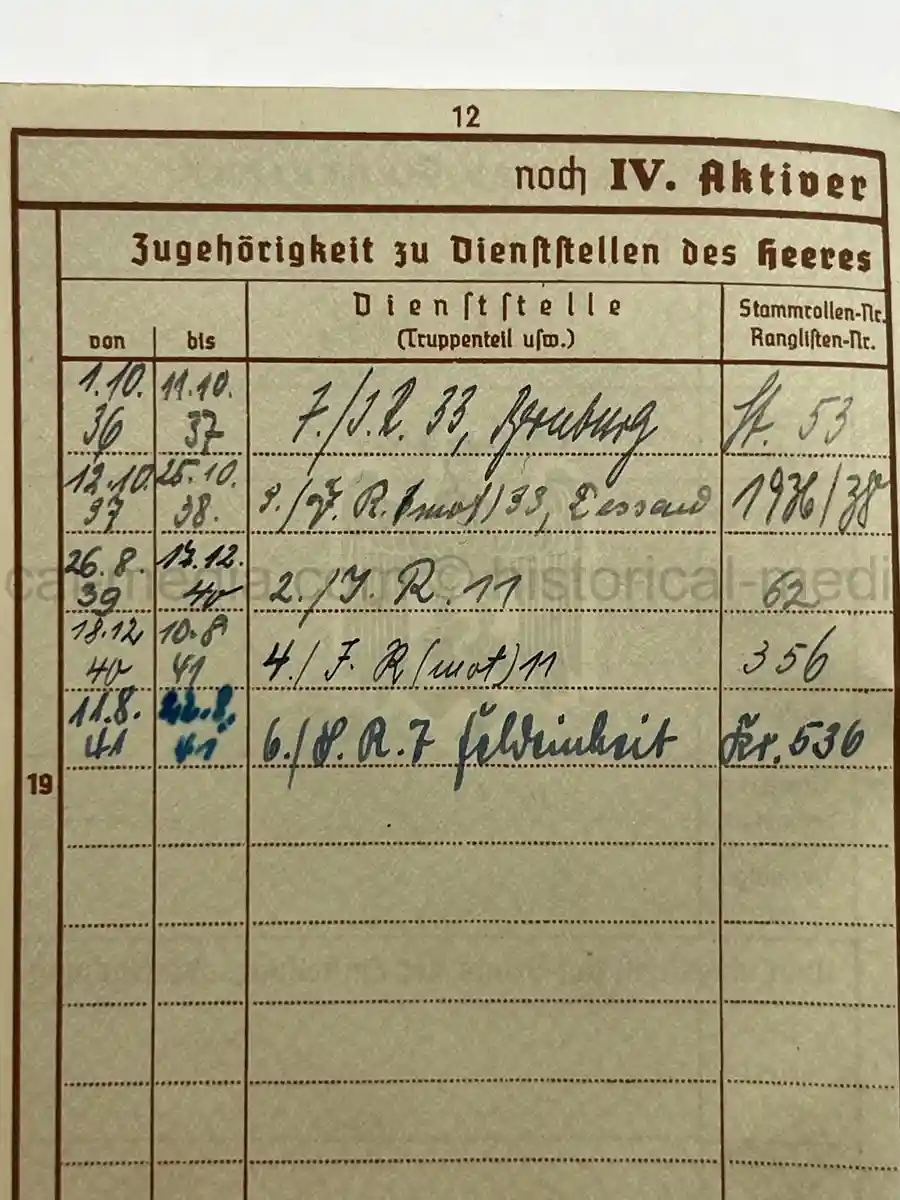 12
noch IV. Aktiver
Zugehörigkeit zu Dienststellen des Heeres
Dienststelle
(Truppenteil usw.)
Stammrollen-Nr.
Ranglisten-Nr.
von
bis
1.10. 36
11.10. 37
7./I.R. 33, Bernburg
St. 53
12.10. 37
25.10. 38.
R. (mot) 33, Dessau
1936/38
26.8. 39
17.12. 40
2./I.R. 11
62
18.12. 40
10.8 41
4./I.R (mot) 11
356
11.8. 41
8. 41
6./ R. 7 Feldeinheit
Kr. 536
19
historical-medi